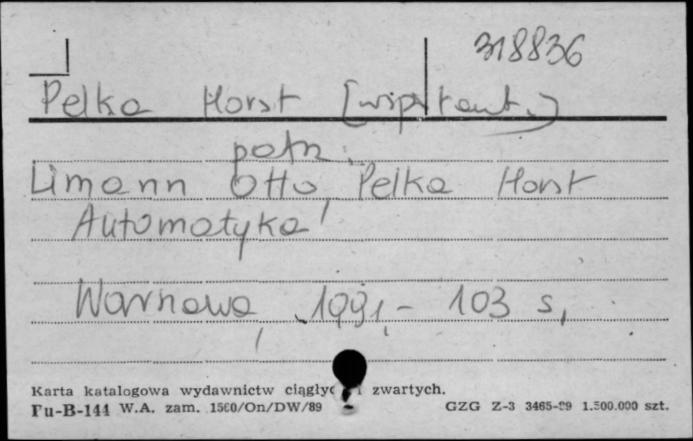 318836
Pelka Horst [wsp. aut.]
patrz:
Limann Otto, Pelka Horst
Automatyka
Warszawa, 1991, - 103 s,
Karta katalogowa wydawnictw ciągłyc i zwartych.
Pu-B-144 W.A. zam. 1560/On/DW/89 GZG Z-3 3465-89 1.500.000 szt.